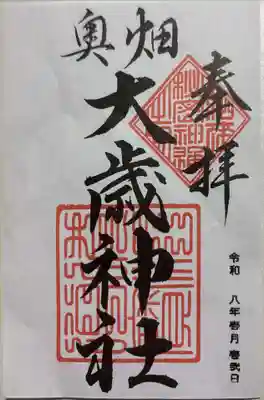 奉拝
奥畑
大歳神社
令和 八年壱月壱弐日